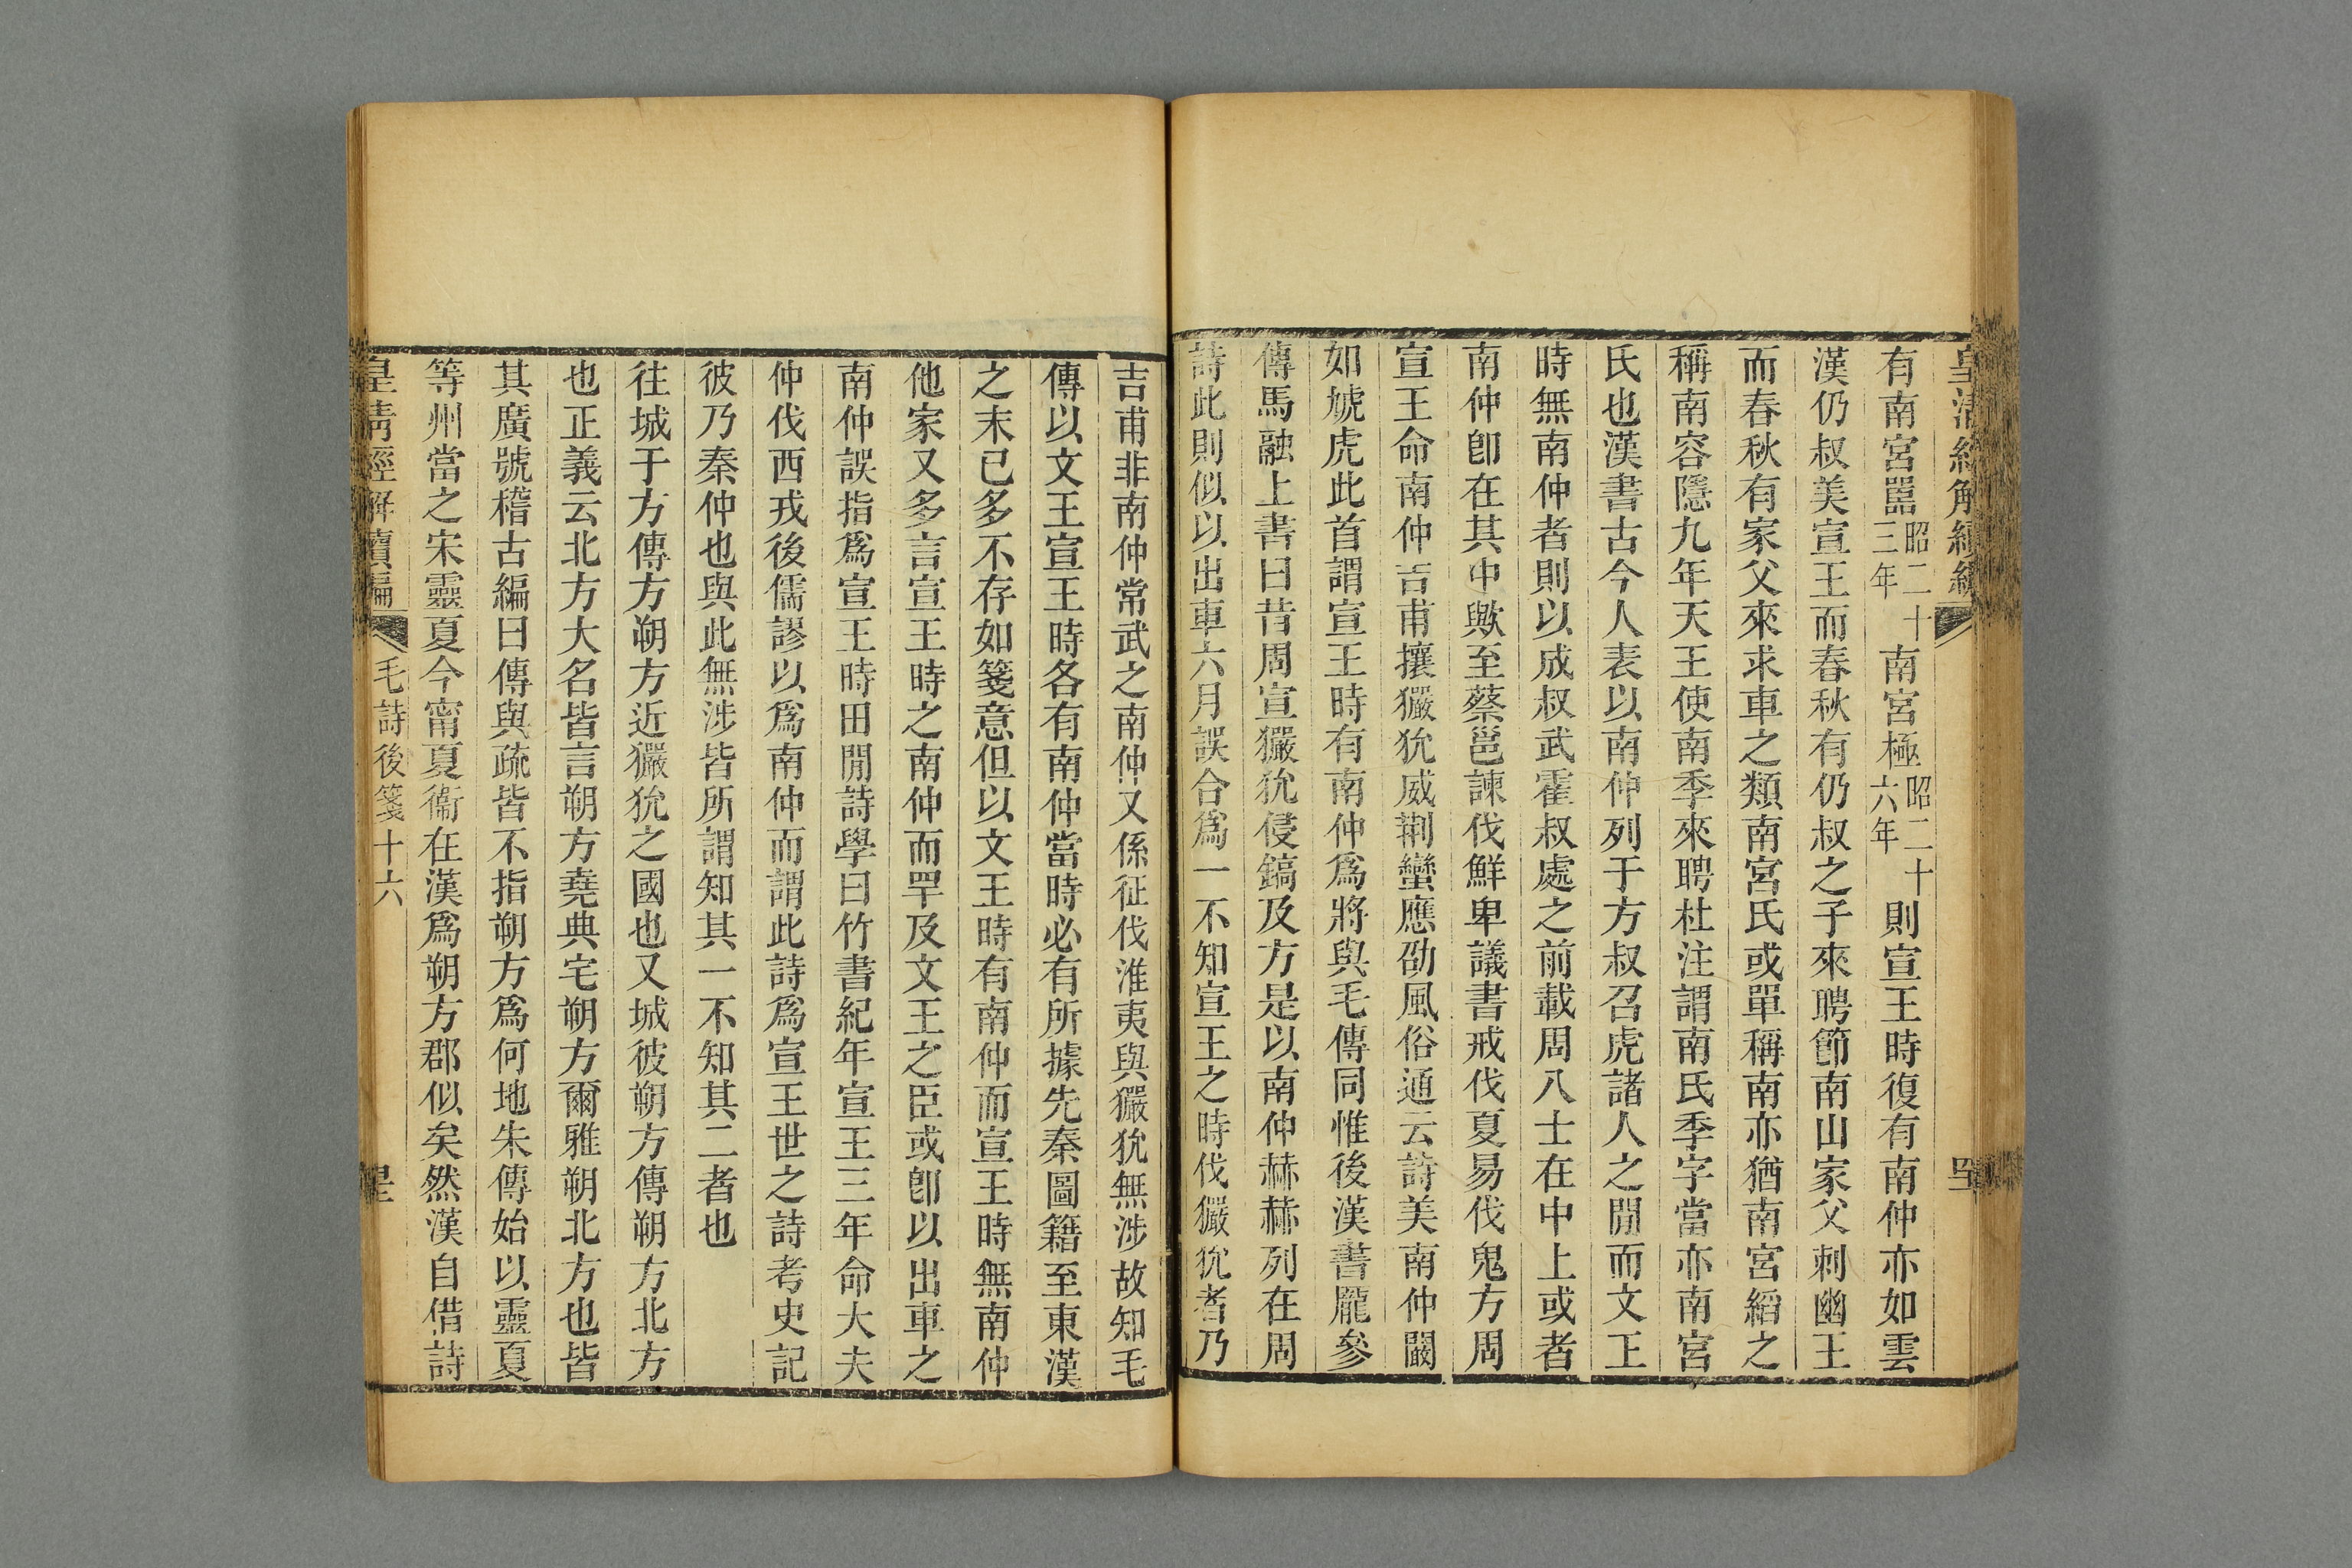 皇清經解續編
有南宮嚚昭二十三年南宮極昭二十六年則宣王時復有南仲亦如雲
漢仍叔美宣王而春秋有仍叔之子來聘節南山家父刺幽王
而春秋有家父來求車之類南宮氏或單稱南亦猶南宮縚之
稱南容隱九年天王使南季來聘杜注謂南氏季字當亦南宮
氏也漢書古今人表以南仲列于方叔召虎諸人之閒而文王
時無南仲者則以成叔武霍叔處之前載周八士在中上或者
南仲卽在其中歟至蔡邕諫伐鮮卑議書戒伐夏易伐鬼方周
宣王命南仲吉甫攘玁狁威荆蠻應劭風俗通云詩美南仲闞
如虓虎此首謂宣王時有南仲爲將與毛傳同惟後漢書龐參
傳馬融上書曰昔周宣玁狁侵鎬及方是以南仲赫赫列在周
詩此則似以出車六月誤合爲一不知宣王之時伐玁狁者乃
吉甫非南仲常武之南仲又係征伐淮夷與玁狁無涉故知毛
傳以文王宣王時各有南仲當時必有所據先秦圖籍至東漢
之末已多不存如箋意但以文王時有南仲而宣王時無南仲
他家又多言宣王時之南仲而罕及文王之臣或卽以出車之
南仲誤指爲宣王時田閒詩學曰竹書紀年宣王三年命大夫
仲伐西戎後儒謬以爲南仲而謂此詩爲宣王世之詩考史記
彼乃秦仲也與此無涉皆所謂知其一不知其二者也
往城于方傳方朔方近玁狁之國也又城彼朔方傳朔方北方
也正義云北方大名皆言朔方堯典宅朔方爾雅朔北方也皆
其廣號稽古編曰傳與疏皆不指朔方爲何地朱傳始以靈夏
等州當之宋靈夏今甯夏衞在漢爲朔方郡似矣然漢自借詩
皇清經解續編
毛詩後箋十六